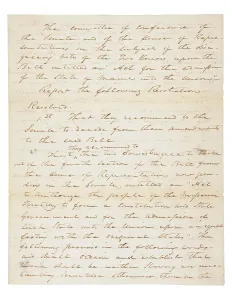 The Committee of Conference of
the Senate and of the House of Repre
sentatives on the subject of the disa
greeing votes of the Two Houses upon the
Bill entitled an Act for the admission
of the State of Maine into the Union
Report the following Resolution.
Resolved.
1st That they recommend to the
Senate to recede from their amendments
to the said Bill
2d That they recommend to
the two Houses
of the fourth section of the Bill from
the House of Representatives now pen
ding in the Senate, entitled an "Act
to authorize the people of the Missouri
Territory to form a Constitution and State
Government and for the admission of
such State into the Union upon an equal
footing with the original States" the
following proviso in the following words
and shall ordain and establish that
there shall be neither Slavery nor invo
luntary servitude otherwise than in the